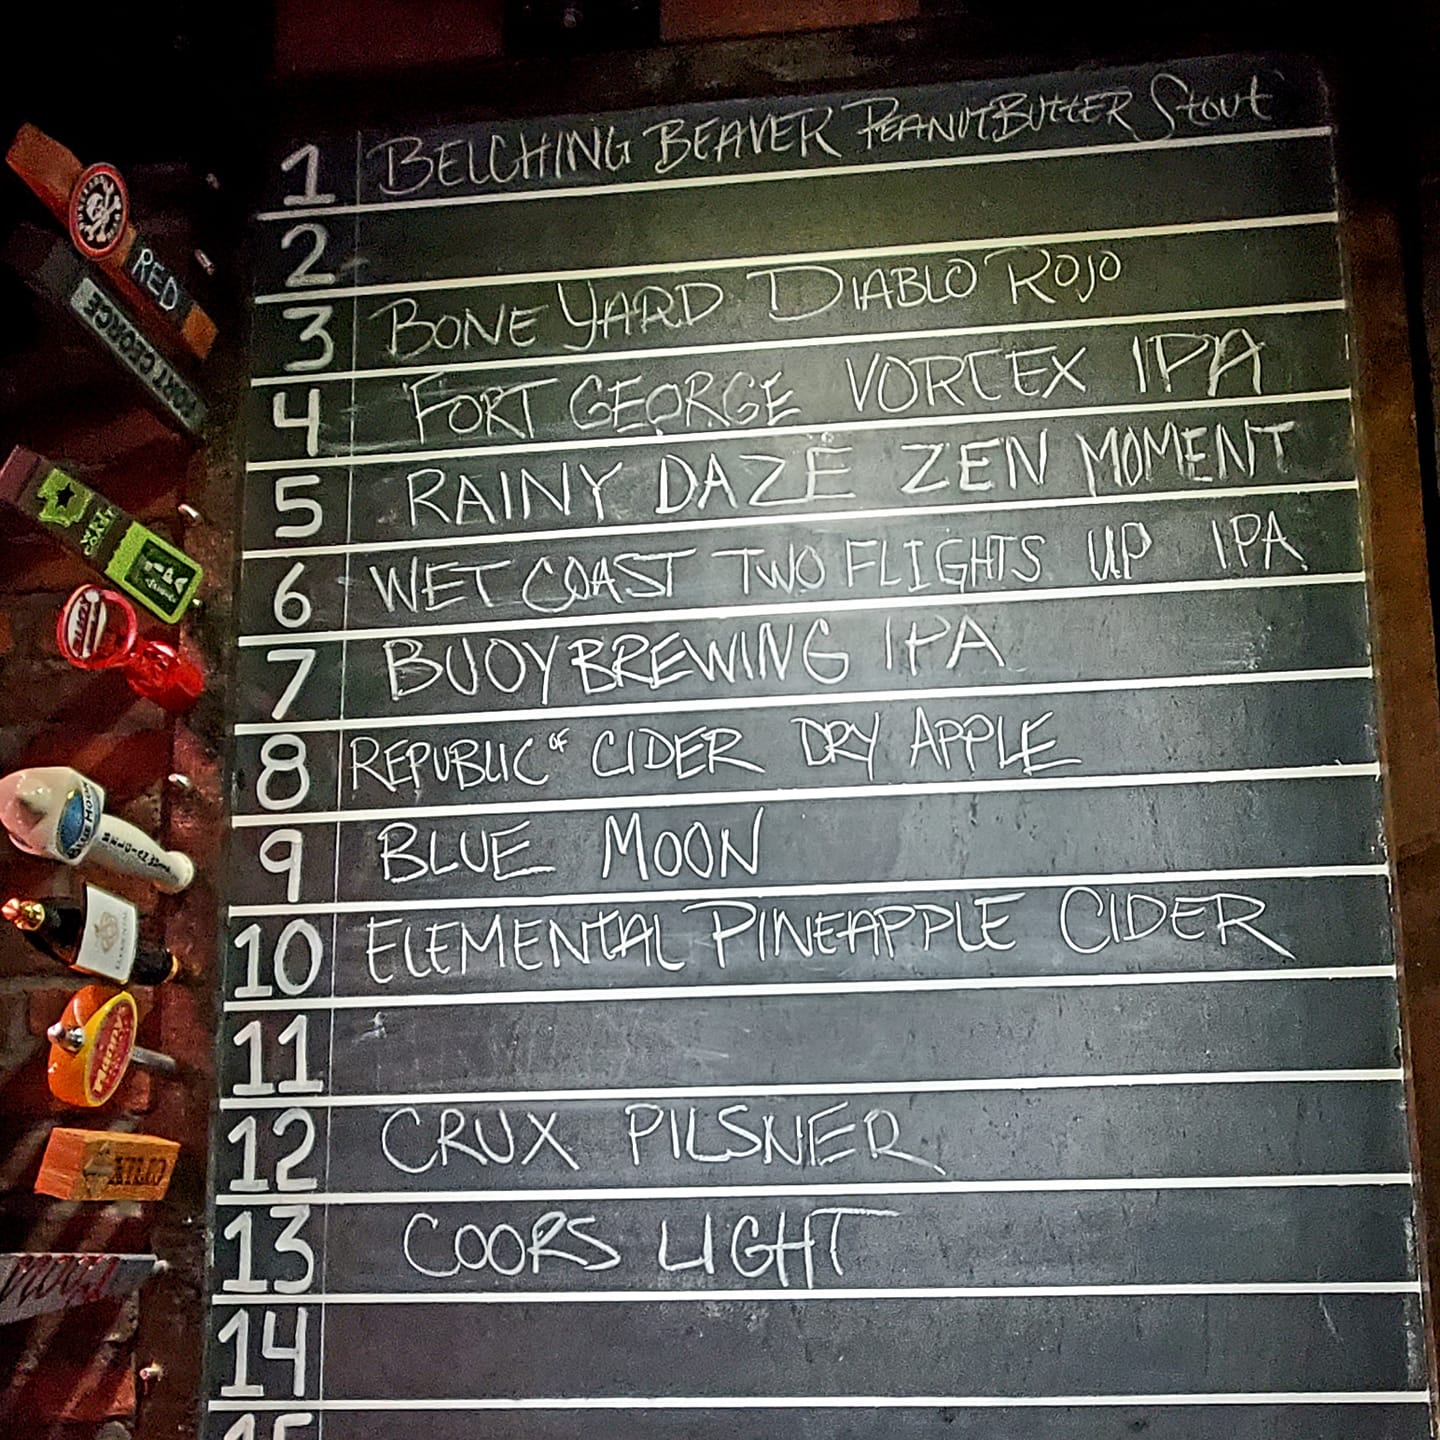 1 BELCHING BEAVER PEANUTBUTTER Stout
2
3 BONE YARD DIABLO ROJO
4 FORT GEORGE VORTEX IPA
5 RAINY DAZE ZEN MOMENT
6 WET COAST TWO FLIGHTS UP IPA
7 BUOY BREWING IPA
8 REPUBLIC OF CIDER DRY APPLE
9 BLUE MOON
10 ELEMENTAL PINEAPPLE CIDER
11
12 CRUX PILSNER
13 COORS LIGHT
14
15
RED
FORT GEORGE
BLUE MOON